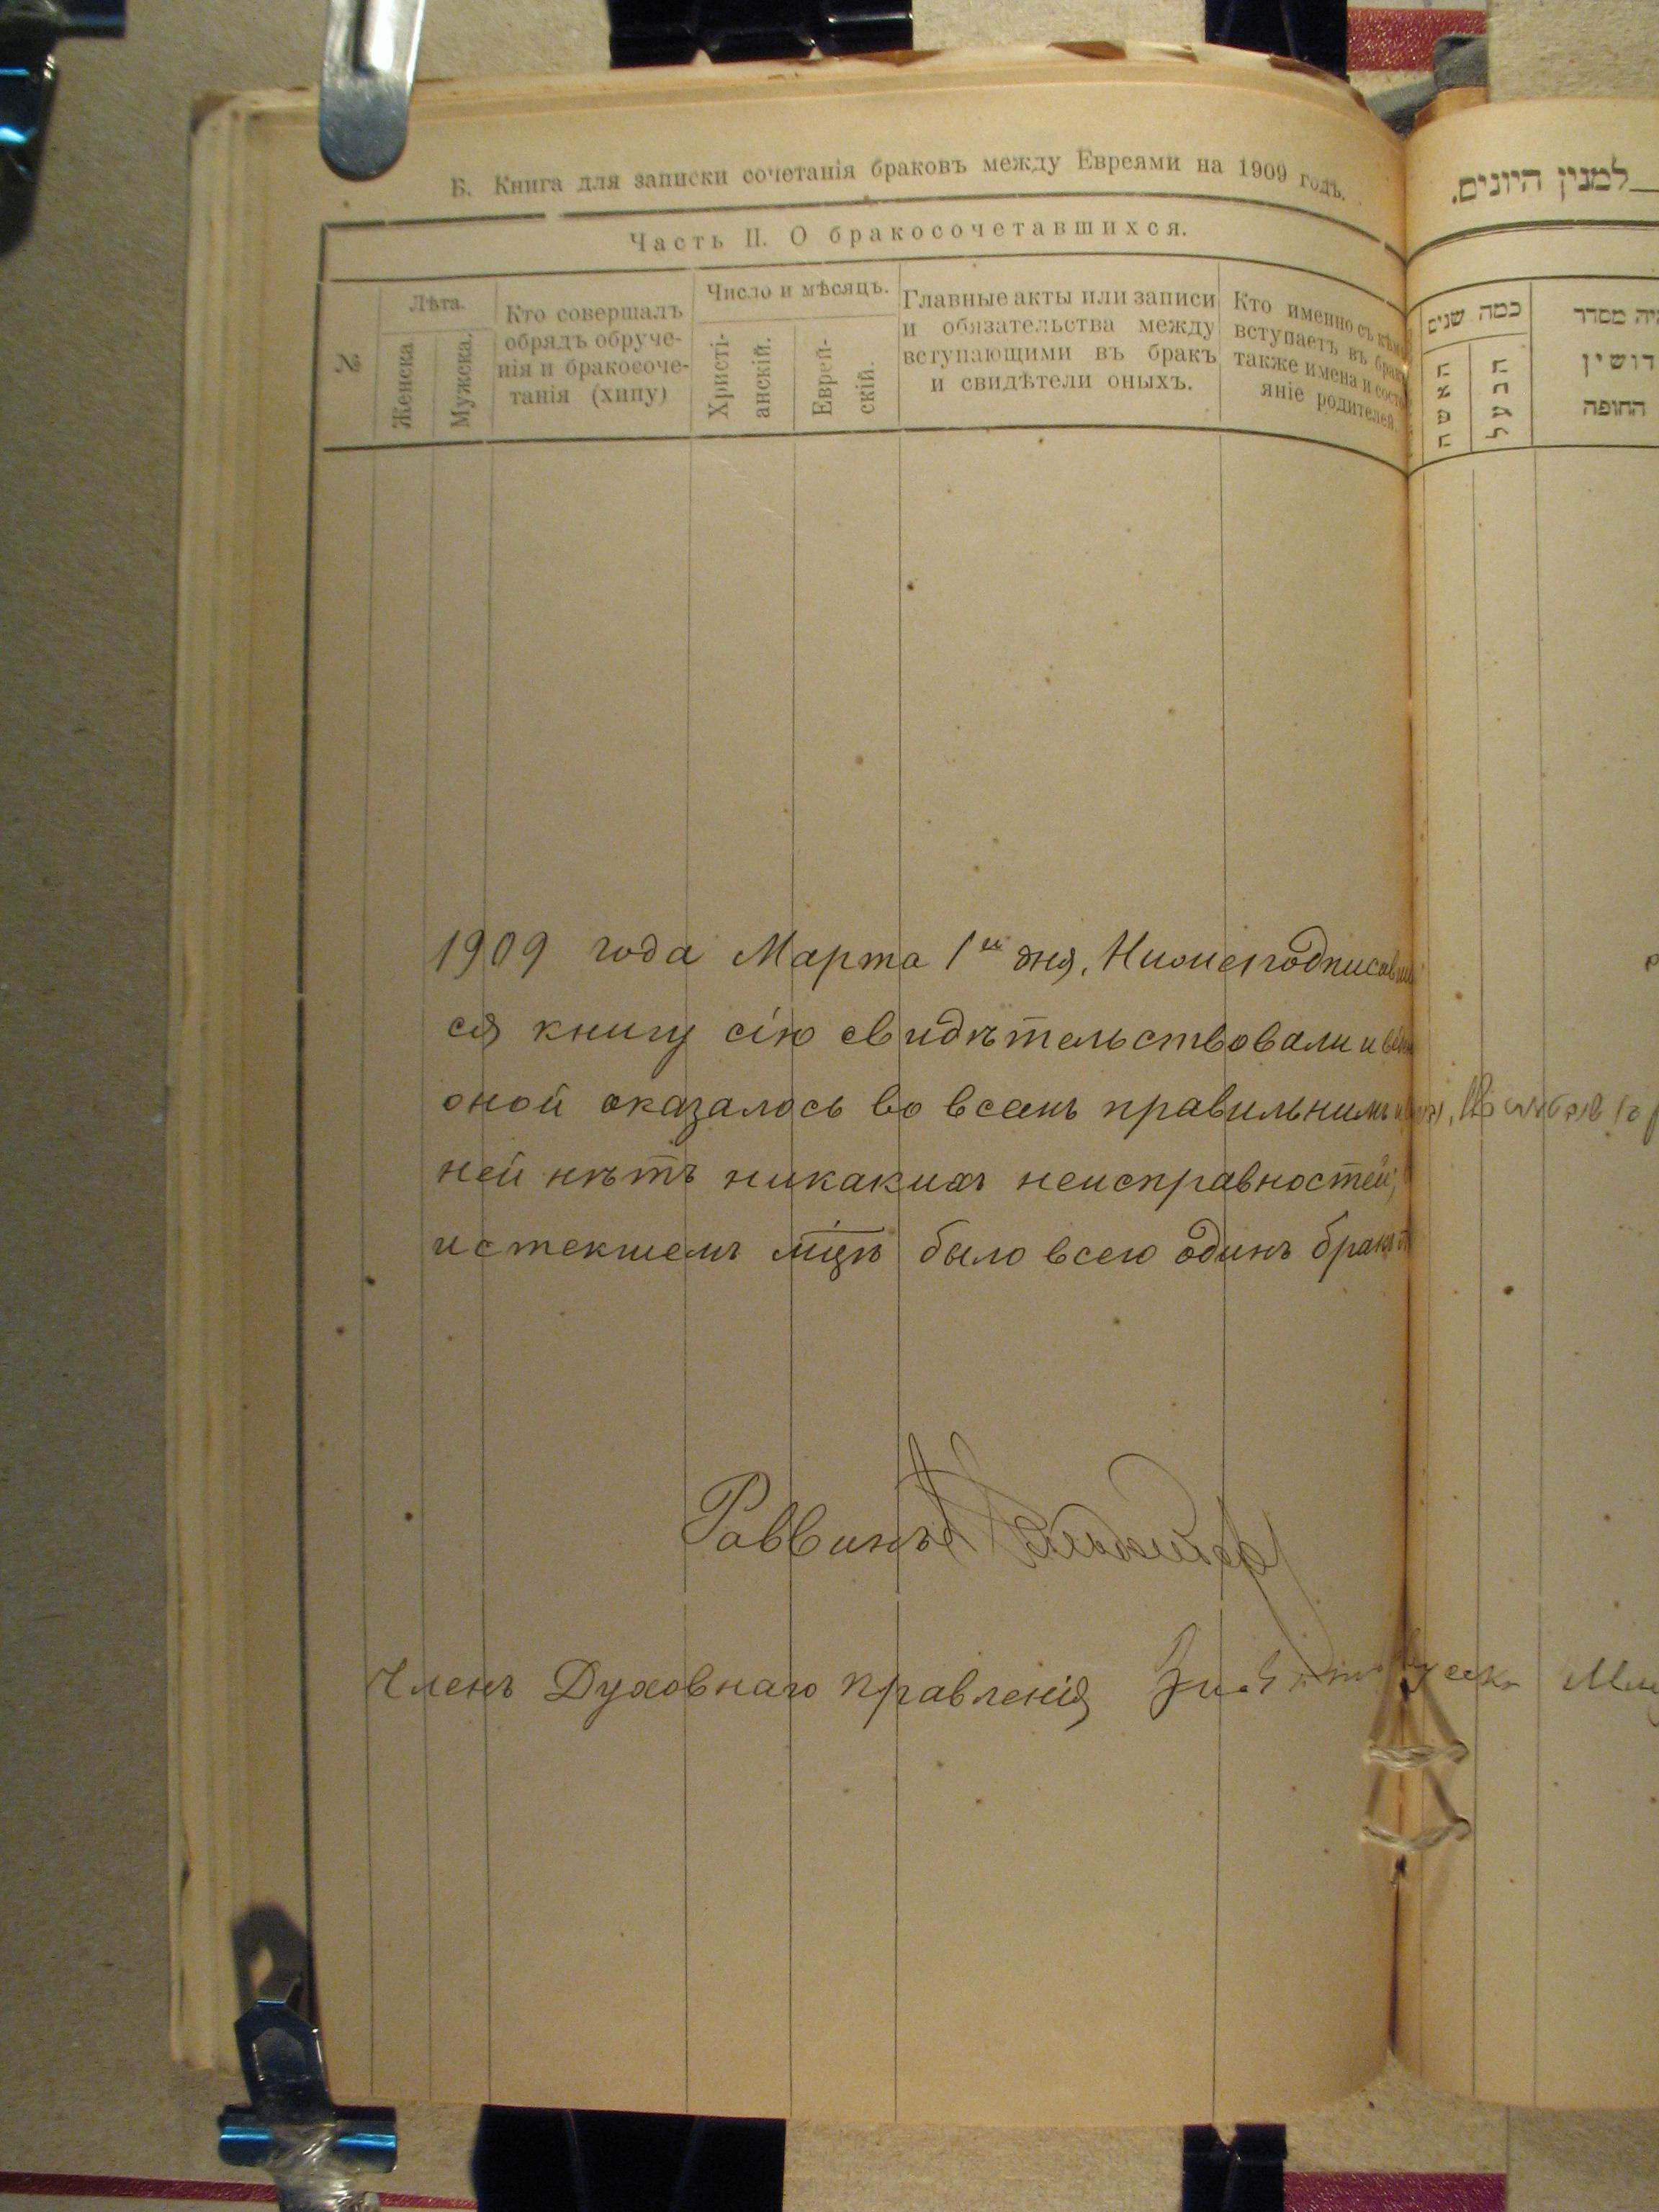 Б. Книга для записки сочетанія браковъ между Евреями на 1909 годъ.
Часть II. О бракосочетавшихся.
№
Лѣта.
Женска.
Мужска.
Кто совершалъ
обрядъ обруче-
нія и бракосоче-
танія (хипу)
Число и мѣсяцъ.
Христі-
анскій.
Еврей-
скій.
Главные акты или записи
и обязательства между
вступающими въ бракъ
и свидѣтели оныхъ.
Кто именно съ кѣмъ
вступаетъ въ бракъ
также имена и состо-
яніе родителей.
1909 года Марта 1го дня, Нижеподписавши
ся книгу сію свидѣтельствовали и
оной оказалось во всемъ правильнымъ
ней нѣтъ никакихъ неисправностей;
истекшемъ мцѣ было всего одинъ бракъ
Раввинъ
Членъ Духовнаго Правленія
למנין היונים.
כמה שנים
האשה
הבעל
מסדר
החופה